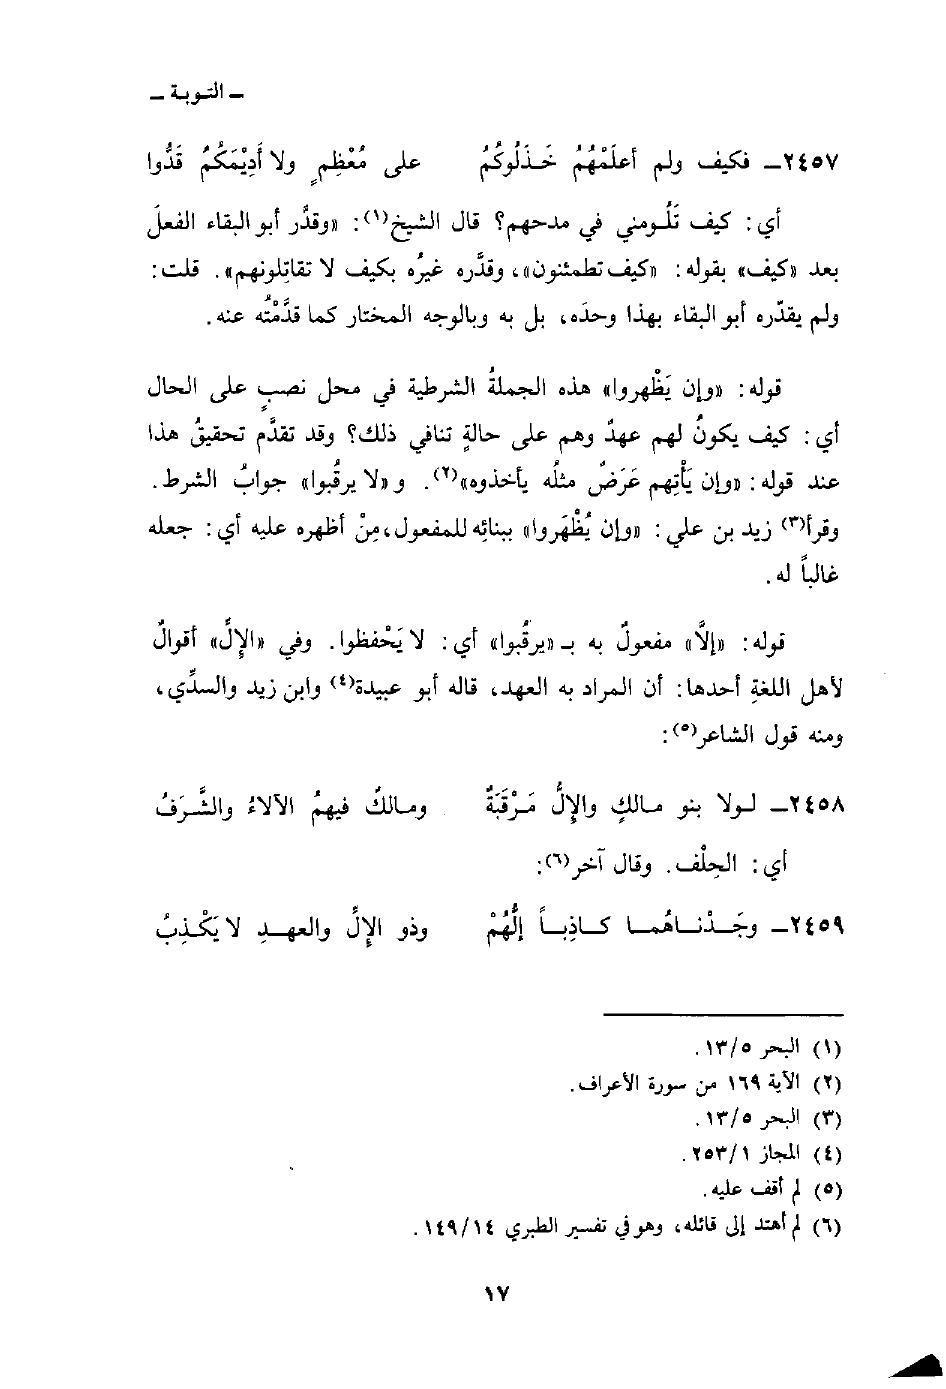 ـ التوبة ـ
٢٤٥٧ـ فكيف ولم أعلَمْهُمُ خَذَلُوكُمُ على مُعْظَمٍ ولا أَدِيْمَكُمُ قَدُّوا
أي: كيف تَلُومني في مدحهم؟ قال الشيخ(١): «وقدَّر أبو البقاء الفعلَ
بعد «كيف» بقوله: «كيف تطمئنون»، وقدَّره غيرُه بكيف لا تقاتِلونهم». قلت:
ولم يقدّره أبو البقاء بهذا وحدَه، بل به وبالوجه المختار كما قدَّمْتُه عنه.
قوله: «وإن يَظْهروا» هذه الجملةُ الشرطية في محل نصبٍ على الحال
أي: كيف يكونُ لهم عهدٌ وهم على حالةٍ تنافي ذلك؟ وقد تقدَّم تحقيقُ هذا
عند قوله: «وإن يَأْتِهم عَرَضٌ مثلُه يأخذوه»(٢). و«لا يرقُبوا» جوابُ الشرط.
وقرأ(٣) زيد بن علي: «وإن يُظْهَروا» ببنائِه للمفعول، مِنْ أظهره عليه أي: جعله
غالباً له.
قوله: «إلَّا» مفعولٌ به بـ «يرقُبوا» أي: لا يَحْفظوا. وفي «الإِلِّ» أقوالٌ
لأهل اللغةِ أحدها: أن المراد به العهد، قاله أبو عبيدة(٤) وابن زيد والسدِّي،
ومنه قول الشاعر(٥):
٢٤٥٨ـ لولا بنو مالكٍ والإِلُّ مَرْقَبَةٌ ومالكٌ فيهمُ الآلاءُ والشَّرَفُ
أي: الحِلْف. وقال آخر(٦):
٢٤٥٩ـ وجَدْناهُما كاذِباً إلُّهُمْ وذو الإِلِّ والعهدِ لا يَكْذِبُ
(١) البحر ١٣/٥.
(٢) الآية ١٦٩ من سورة الأعراف.
(٣) البحر ١٣/٥.
(٤) المجاز ٢٥٣/١.
(٥) لم أقف عليه.
(٦) لم أهتد إلى قائله، وهو في تفسير الطبري ١٤٩/١٤.
١٧